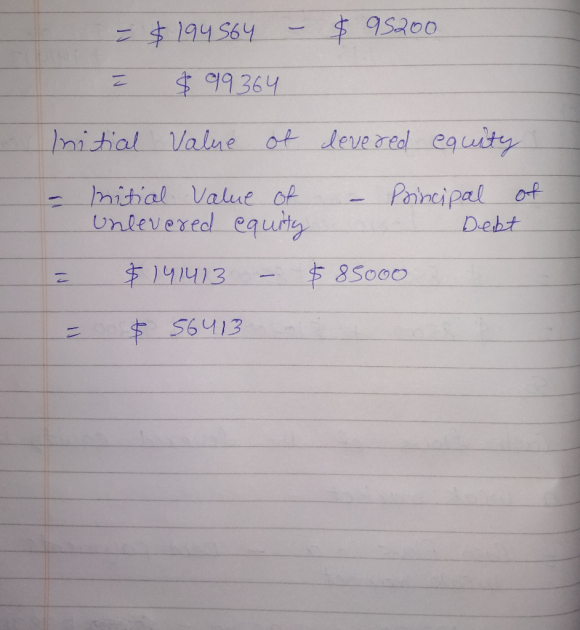 = $ 194564 - $ 95200
= $ 99364
Initial Value of levered equity
= Initial Value of - Principal of
Unlevered equity Debt
= $ 141413 - $ 85000
= $ 56413